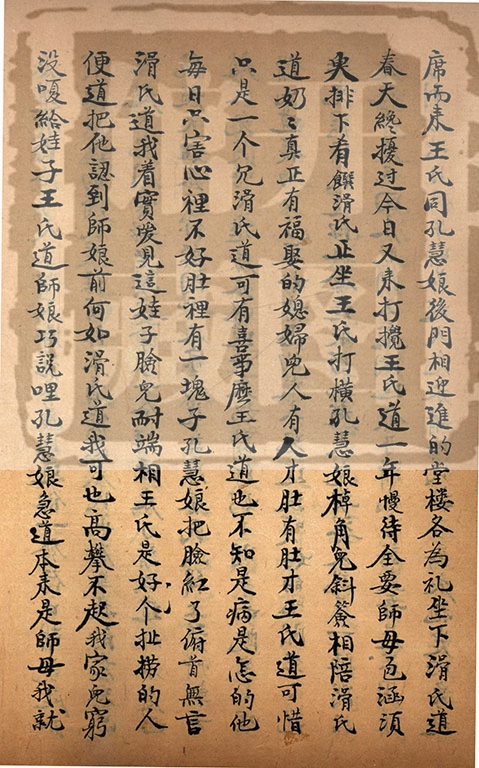 席而来王氏同孔慧娘後門相迎進的堂楼各為礼坐下滑氏道
春天纔擾过今日又来打攪王氏道一年慢待全要師母包涵須
臾排下肴饌滑氏正坐王氏打横孔慧娘棹角兒斜簽相陪滑氏
道奶〻真正有福娶的媳婦兒人有人才肚有肚才王氏道可惜
只是一个冗滑氏道可有喜事麽王氏道也不知是病是怎的他
每日只害心裡不好肚裡有一塊子孔慧娘把臉紅了俯首無言
滑氏道我着實愛見這娃子臉兒耐端相王氏是好个扯捞的人
便道把他認到師娘前何如滑氏道我可也高攀不起我家兒窮
没嗄給娃子王氏道師娘巧説哩孔慧娘急道本来是師母我就